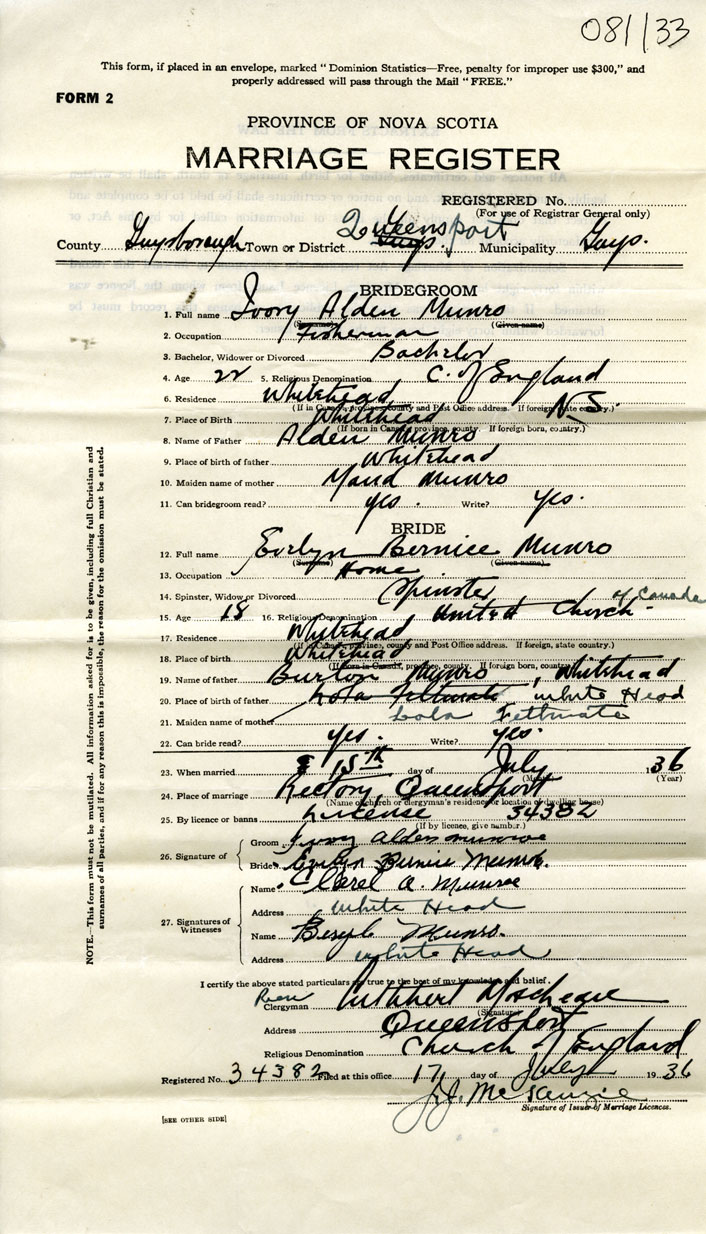 081/33
This form, if placed in an envelope, marked “Dominion Statistics—Free, penalty for improper use $300,” and
properly addressed will pass through the Mail “FREE.”
FORM 2
PROVINCE OF NOVA SCOTIA
MARRIAGE REGISTER
REGISTERED No.
(For use of Registrar General only)
County Guysborough Town or District Queensport Guys. Municipality Guys.
BRIDEGROOM
1. Full name Ivory Alden Munro
(Surname) (Given name)
2. Occupation Fisherman
3. Bachelor, Widower or Divorced Bachelor
4. Age 22 5. Religious Denomination C. of England
6. Residence Whitehead N.S.
(If in Canada, province, county and Post Office address. If foreign, state country.)
7. Place of Birth Whitehead
(If born in Canada, province, county. If foreign born, country.)
8. Name of Father Alden Munro
9. Place of birth of father Whitehead
10. Maiden name of mother Maud Munro
11. Can bridegroom read? yes. Write? Yes.
BRIDE
12. Full name Evelyn Bernice Munro
(Surname) (Given name)
13. Occupation Home
14. Spinster, Widow or Divorced Spinster
15. Age 18 16. Religious Denomination United Church of Canada
17. Residence Whitehead
(If in Canada, province, county and Post Office address. If foreign, state country.)
18. Place of birth Whitehead
(If born in Canada, province, county. If foreign born, country.)
19. Name of father Burton Munro, Whitehead
20. Place of birth of father Lola Feltmate White Head
21. Maiden name of mother Lola Feltmate
22. Can bride read? Yes. Write? Yes.
23. When married 15th day of July 1936
(Month) (Year)
24. Place of marriage Rectory, Queensport
(Name of church or clergyman's residence or location of dwelling house)
25. By licence or banns License 34382
(If by licence, give number.)
26. Signature of Groom Ivory Alden Munroe
Bride Evelyn Bernice Munro.
27. Signatures of Witnesses Name A. Munroe
Address White Head
Name Beryl Munro.
Address White Head
I certify the above stated particulars true to the best of my knowledge and belief.
Clergyman Cuthbert
(Signature)
Address Queensport
Religious Denomination Church of England
Registered No. 34382 Filed at this office 17 day of July 1936
J.J. McKenzie
Signature of Issuer of Marriage Licences.
[SEE OTHER SIDE]
NOTE.—This form must not be mutilated. All information asked for is to be given, including full Christian and
surnames of all parties, and if for any reason this is impossible, the reason for the omission must be stated.